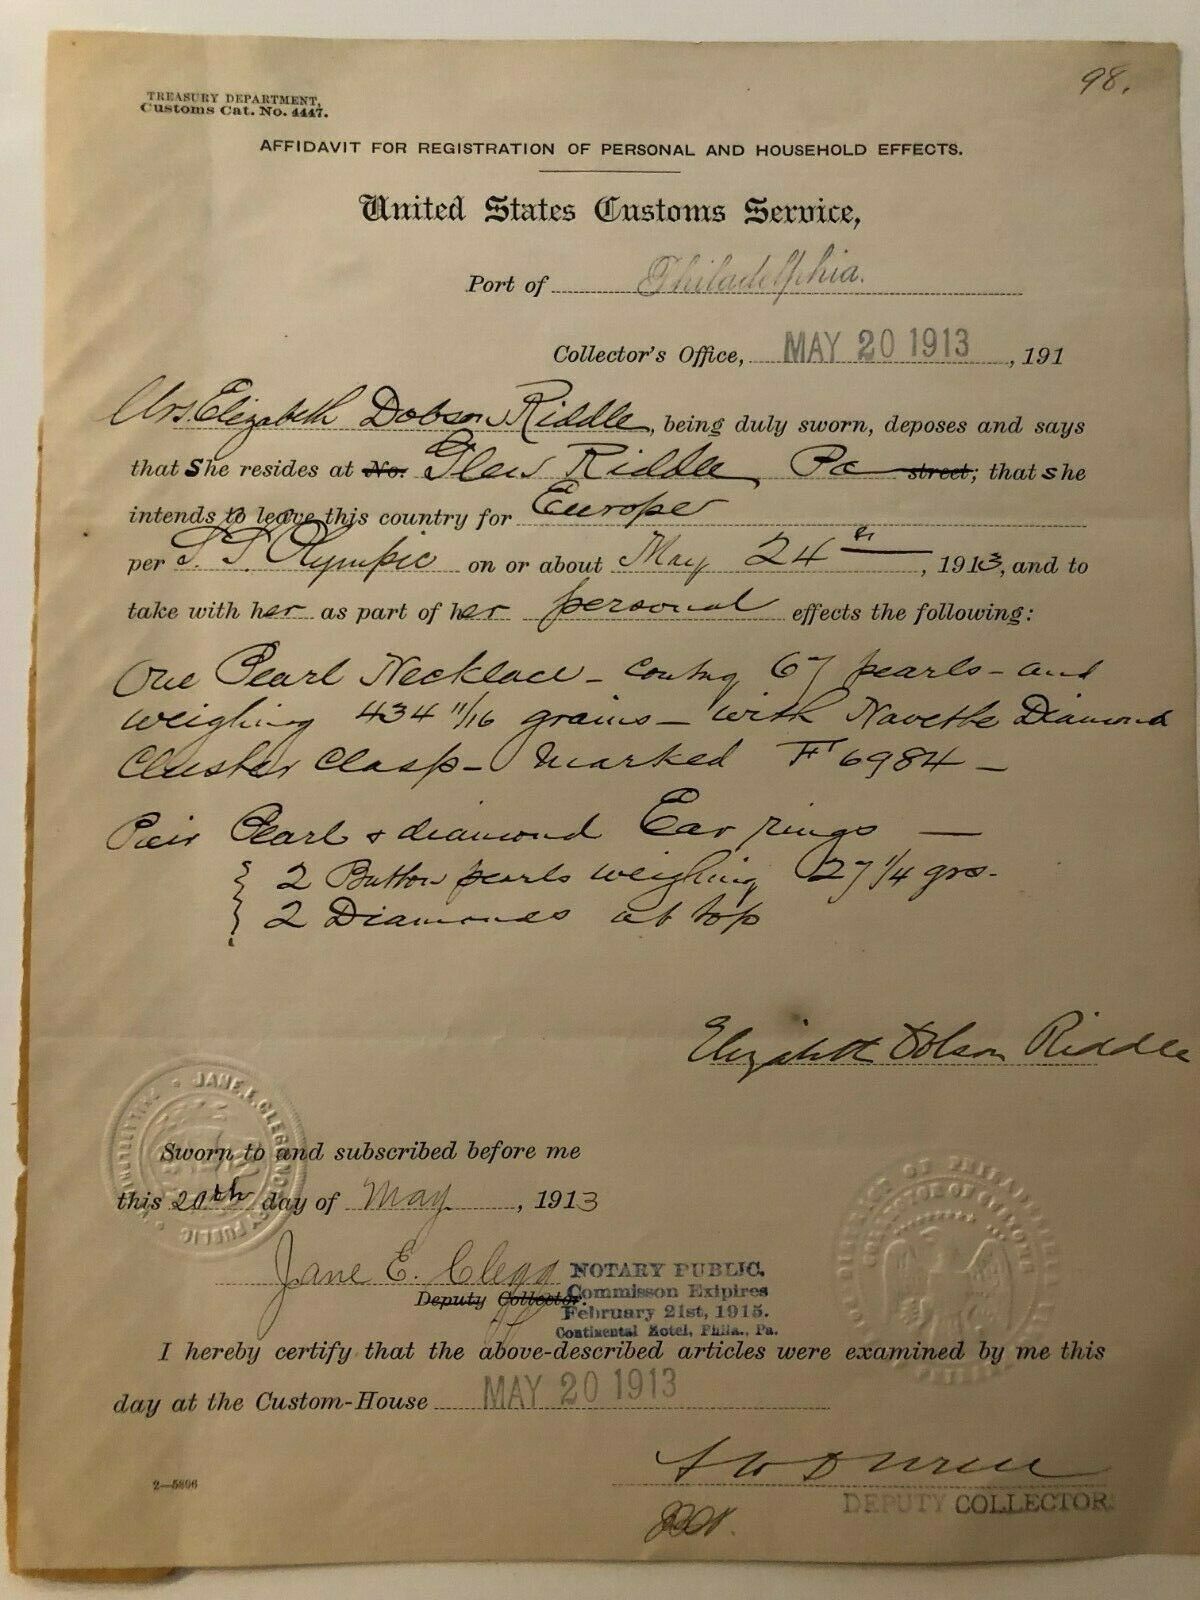 98.
TREASURY DEPARTMENT,
Customs Cat. No. 4447.
AFFIDAVIT FOR REGISTRATION OF PERSONAL AND HOUSEHOLD EFFECTS.
United States Customs Service,
Port of Philadelphia.
Collector's Office, MAY 20 1913, 191
Mrs. Elizabeth Dobson Riddle, being duly sworn, deposes and says
that She resides at No. Glen Riddle, Pa street; that she
intends to leave this country for Europe
per S.S. Olympic on or about May 24th, 1913, and to
take with her as part of her personal effects the following:
One Pearl Necklace - contng 67 pearls - and
weighing 434 11/16 grains - with Navette Diamond
Cluster Clasp - Marked F 6984 -
Pair Pearl & diamond Ear rings -
2 Button pearls weighing 27 1/4 grs.
2 Diamonds at top
Elizabeth Dobson Riddle
JANE E. CLEGG NOTARY PUBLIC
Sworn to and subscribed before me
this 20th day of May, 1913
Jane E. Clegg
Deputy Collector.
NOTARY PUBLIC.
Commisson Exipires
February 21st, 1915.
Continental Hotel, Phila., Pa.
COLLECTOR OF CUSTOMS
I hereby certify that the above-described articles were examined by me this
day at the Custom-House MAY 20 1913
2—5896
DEPUTY COLLECTOR.